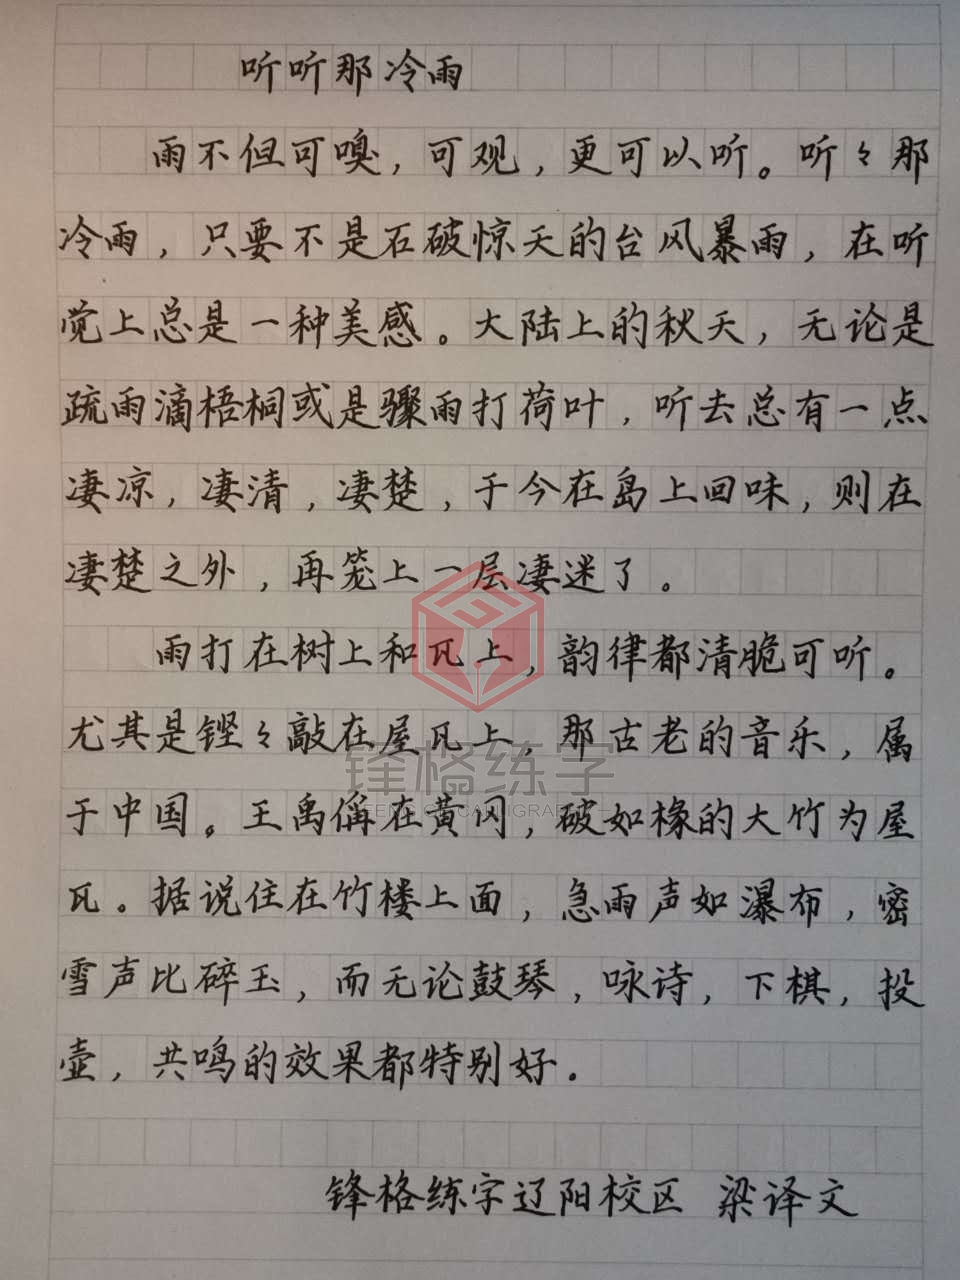 听听那冷雨
雨不但可嗅，可观，更可以听。听々那
冷雨，只要不是石破惊天的台风暴雨，在听
觉上总是一种美感。大陆上的秋天，无论是
疏雨滴梧桐或是骤雨打荷叶，听去总有一点
凄凉，凄清，凄楚，于今在岛上回味，则在
凄楚之外，再笼上一层凄迷了。
雨打在树上和瓦上，韵律都清脆可听。
尤其是铿々敲在屋瓦上，那古老的音乐，属
于中国。王禹偁在黄冈，破如椽的大竹为屋
瓦。据说住在竹楼上面，急雨声如瀑布，密
雪声比碎玉，而无论鼓琴，咏诗，下棋，投
壶，共鸣的效果都特别好。
锋格练字辽阳校区 梁译文
锋格练字